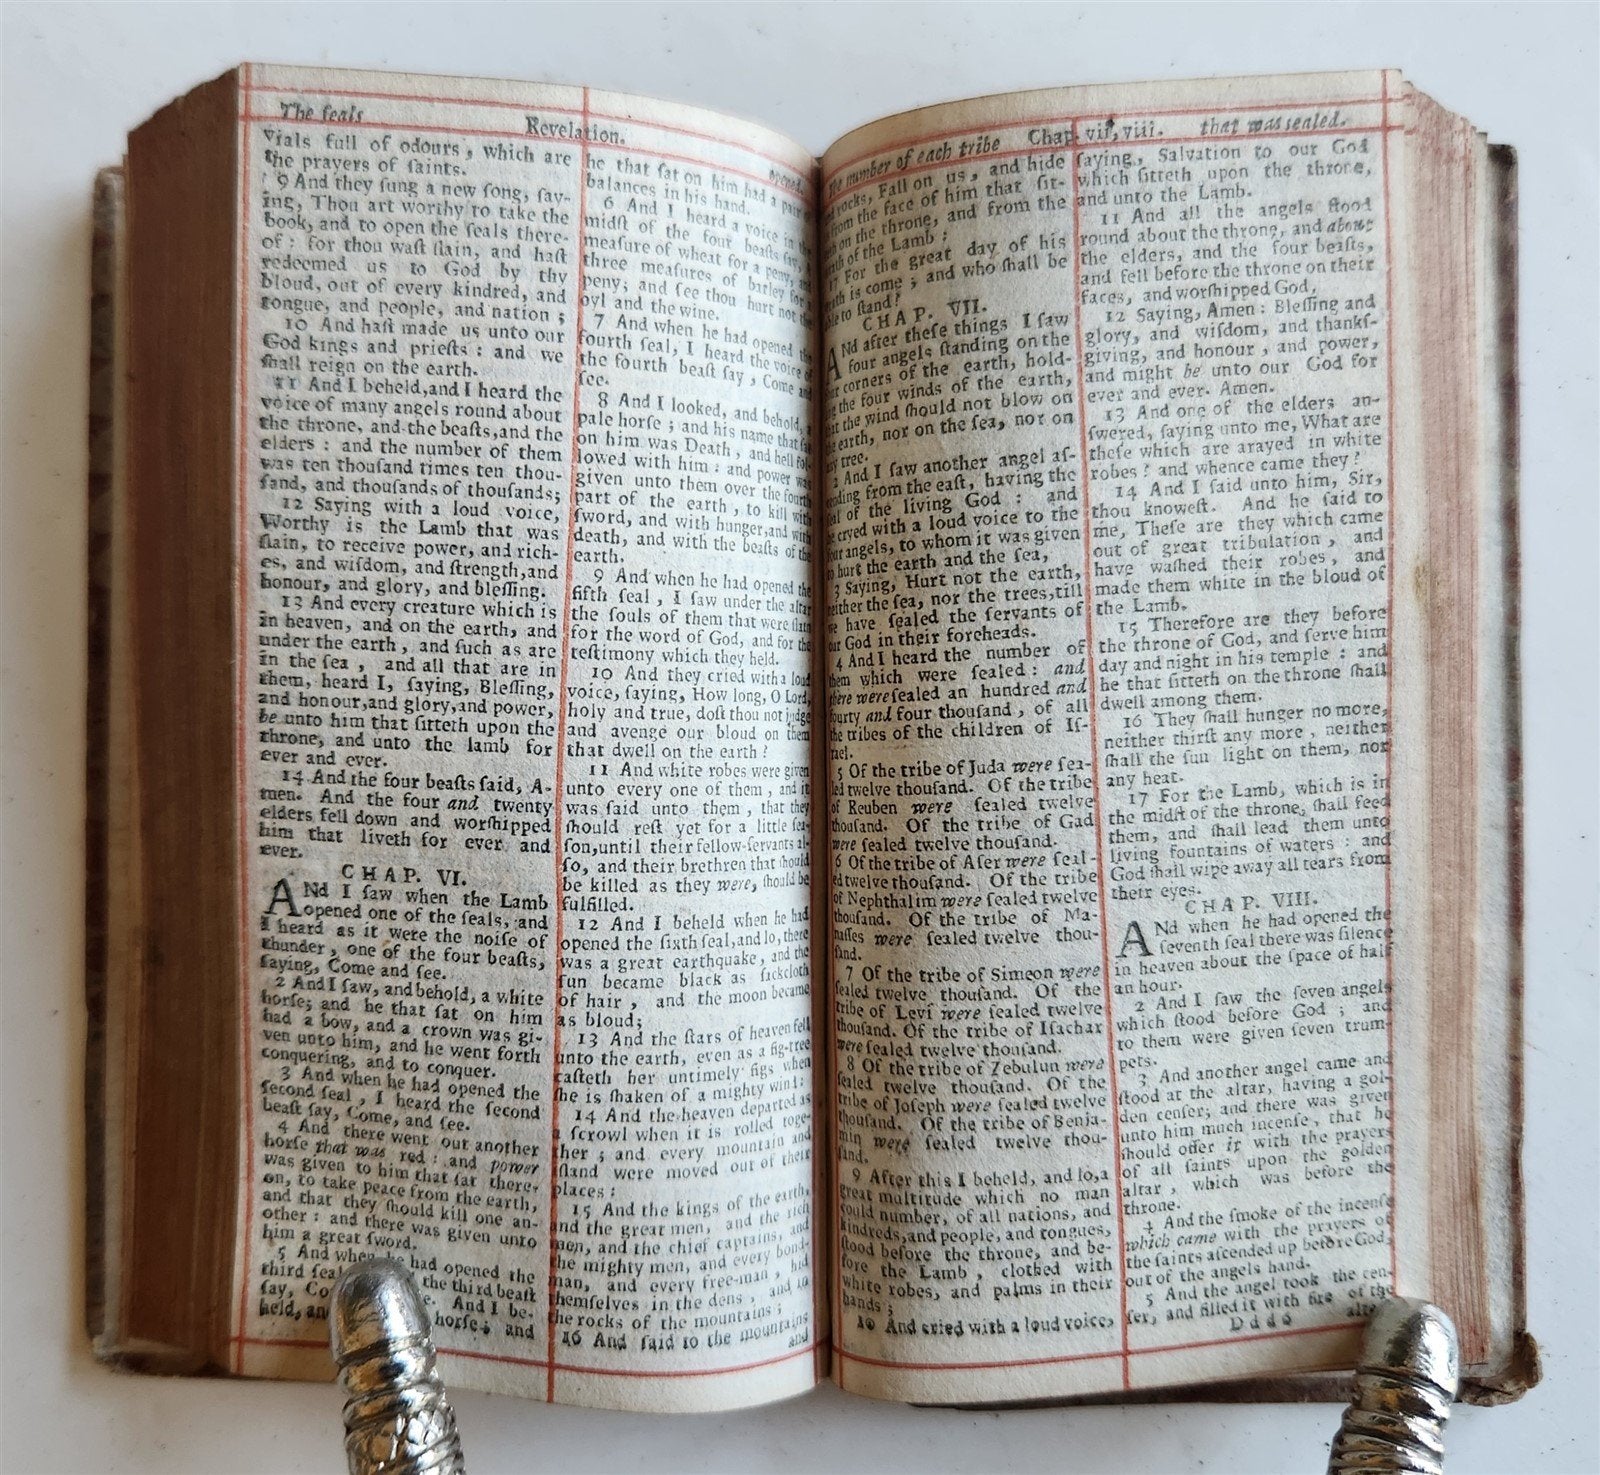 The ſeals
Revelation.
opened.
vials full of odours, which are
the prayers of ſaints.
9 And they ſung a new ſong, ſay-
ing, Thou art worthy to take the
book, and to open the ſeals there-
of: for thou waſt ſlain, and haſt
redeemed us to God by thy
bloud, out of every kindred, and
tongue, and people, and nation;
10 And haſt made us unto our
God kings and prieſts: and we
ſhall reign on the earth.
11 And I beheld, and I heard the
voice of many angels round about
the throne, and the beaſts, and the
elders: and the number of them
was ten thouſand times ten thou-
ſand, and thouſands of thouſands;
12 Saying with a loud voice,
Worthy is the Lamb that was
ſlain, to receive power, and rich-
es, and wiſdom, and ſtrength, and
honour, and glory, and bleſſing.
13 And every creature which is
in heaven, and on the earth, and
under the earth, and ſuch as are
in the ſea, and all that are in
them, heard I, ſaying, Bleſſing,
and honour, and glory, and power,
be unto him that ſitteth upon the
throne, and unto the lamb for
ever and ever.
14 And the four beaſts ſaid, A-
men. And the four and twenty
elders fell down and worſhipped
him that liveth for ever and
ever.
CHAP. VI.
ANd I ſaw when the Lamb
opened one of the ſeals, and
I heard as it were the noiſe of
thunder, one of the four beaſts,
ſaying, Come and ſee.
2 And I ſaw, and behold, a white
horſe; and he that ſat on him
had a bow, and a crown was gi-
ven unto him, and he went forth
conquering, and to conquer.
3 And when he had opened the
ſecond ſeal, I heard the ſecond
beaſt ſay, Come, and ſee.
4 And there went out another
horſe that was red: and power
was given to him that ſat there-
on, to take peace from the earth,
and that they ſhould kill one an-
other: and there was given unto
him a great ſword.
5 And when he had opened the
third ſeal the third beaſt
ſay, Co e. And I be-
held, an horſe; and
he that ſat on him had a pair
balances in his hand.
6 And I heard a voice in the
midſt of the four beaſts ſay,
meaſure of wheat for a peny, and
three meaſures of barley for
peny; and ſee thou hurt not the
oyl and the wine.
7 And when he had opened the
fourth ſeal, I heard the voice of
the fourth beaſt ſay, Come and
ſee.
8 And I looked, and behold, a
pale horſe; and his name that ſat
on him was Death, and hell fol-
lowed with him: and power was
given unto them over the fourth
part of the earth, to kill with
ſword, and with hunger, and with
death, and with the beaſts of the
earth.
9 And when he had opened the
fifth ſeal, I ſaw under the altar
the ſouls of them that were ſlain
for the word of God, and for the
teſtimony which they held.
10 And they cried with a loud
voice, ſaying, How long, O Lord,
holy and true, doſt thou not judge
and avenge our bloud on them
that dwell on the earth?
11 And white robes were given
unto every one of them, and it
was ſaid unto them, that they
ſhould reſt yet for a little ſea-
ſon, until their fellow-ſervants al-
ſo, and their brethren that ſhould
be killed as they were, ſhould be
fulfilled.
12 And I beheld when he had
opened the ſixth ſeal, and lo, there
was a great earthquake, and the
ſun became black as ſackcloth
of hair, and the moon became
as bloud;
13 And the ſtars of heaven fell
unto the earth, even as a fig-tree
caſteth her untimely figs when
ſhe is ſhaken of a mighty wind:
14 And the heaven departed as
a ſcrowl when it is rolled toge-
ther; and every mountain and
iſland were moved out of their
places:
15 And the kings of the earth,
and the great men, and the rich
men, and the chief captains, and
the mighty men, and every bond-
man, and every free-man, hid
themſelves in the dens, and in
the rocks of the mountains;
16 And ſaid to the mountains
and
The number of each tribe
Chap. vii, viii.
that was ſealed.
rocks, Fall on us, and hide
from the face of him that ſit-
on the throne, and from the
of the Lamb:
17 For the great day of his
is come; and who ſhall be
to ſtand?
CHAP. VII.
ANd after theſe things I ſaw
four angels ſtanding on the
corners of the earth, hold-
the four winds of the earth,
the wind ſhould not blow on
the earth, nor on the ſea, nor on
tree.
2 And I ſaw another angel aſ-
cending from the eaſt, having the
ſeal of the living God: and
he cryed with a loud voice to the
four angels, to whom it was given
to hurt the earth and the ſea,
3 Saying, Hurt not the earth,
neither the ſea, nor the trees, till
we have ſealed the ſervants of
our God in their foreheads.
4 And I heard the number of
them which were ſealed: and
there were ſealed an hundred and
fourty and four thouſand, of all
the tribes of the children of Iſ-
rael.
5 Of the tribe of Juda were ſea-
led twelve thouſand. Of the tribe
of Reuben were ſealed twelve
thouſand. Of the tribe of Gad
were ſealed twelve thouſand.
6 Of the tribe of Aſer were ſeal-
ed twelve thouſand. Of the tribe
of Nephthalim were ſealed twelve
thouſand. Of the tribe of Ma-
naſſes were ſealed twelve thou-
ſand.
7 Of the tribe of Simeon were
ſealed twelve thouſand. Of the
tribe of Levi were ſealed twelve
thouſand. Of the tribe of Iſachar
were ſealed twelve thouſand.
8 Of the tribe of Zebulun were
ſealed twelve thouſand. Of the
tribe of Joſeph were ſealed twelve
thouſand. Of the tribe of Benja-
min were ſealed twelve thou-
ſand.
9 After this I beheld, and lo, a
great multitude which no man
could number, of all nations, and
kindreds, and people, and tongues,
ſtood before the throne, and be-
fore the Lamb, clothed with
white robes, and palms in their
hands;
10 And cried with a loud voice,
ſaying, Salvation to our God
which ſitteth upon the throne,
and unto the Lamb.
11 And all the angels ſtood
round about the throne, and about
the elders, and the four beaſts,
and fell before the throne on their
faces, and worſhipped God,
12 Saying, Amen: Bleſſing and
glory, and wiſdom, and thankſ-
giving, and honour, and power,
and might be unto our God for
ever and ever. Amen.
13 And one of the elders an-
ſwered, ſaying unto me, What are
theſe which are arayed in white
robes? and whence came they?
14 And I ſaid unto him, Sir,
thou knoweſt. And he ſaid to
me, Theſe are they which came
out of great tribulation, and
have waſhed their robes, and
made them white in the bloud of
the Lamb.
15 Therefore are they before
the throne of God, and ſerve him
day and night in his temple: and
he that ſitteth on the throne ſhall
dwell among them.
16 They ſhall hunger no more,
neither thirſt any more, neither
ſhall the ſun light on them, nor
any heat.
17 For the Lamb, which is in
the midſt of the throne, ſhall feed
them, and ſhall lead them unto
living fountains of waters: and
God ſhall wipe away all tears from
their eyes.
CHAP. VIII.
ANd when he had opened the
ſeventh ſeal there was ſilence
in heaven about the ſpace of half
an hour.
2 And I ſaw the ſeven angels
which ſtood before God; and
to them were given ſeven trum-
pets.
3 And another angel came and
ſtood at the altar, having a gol-
den cenſer; and there was given
unto him much incenſe, that he
ſhould offer it with the prayers
of all ſaints upon the golden
altar, which was before the
throne.
4 And the ſmoke of the incenſe
which came with the prayers of
the ſaints aſcended up before God,
out of the angels hand.
5 And the angel took the cen-
ſer, and filled it with fire of the
Dddd altar